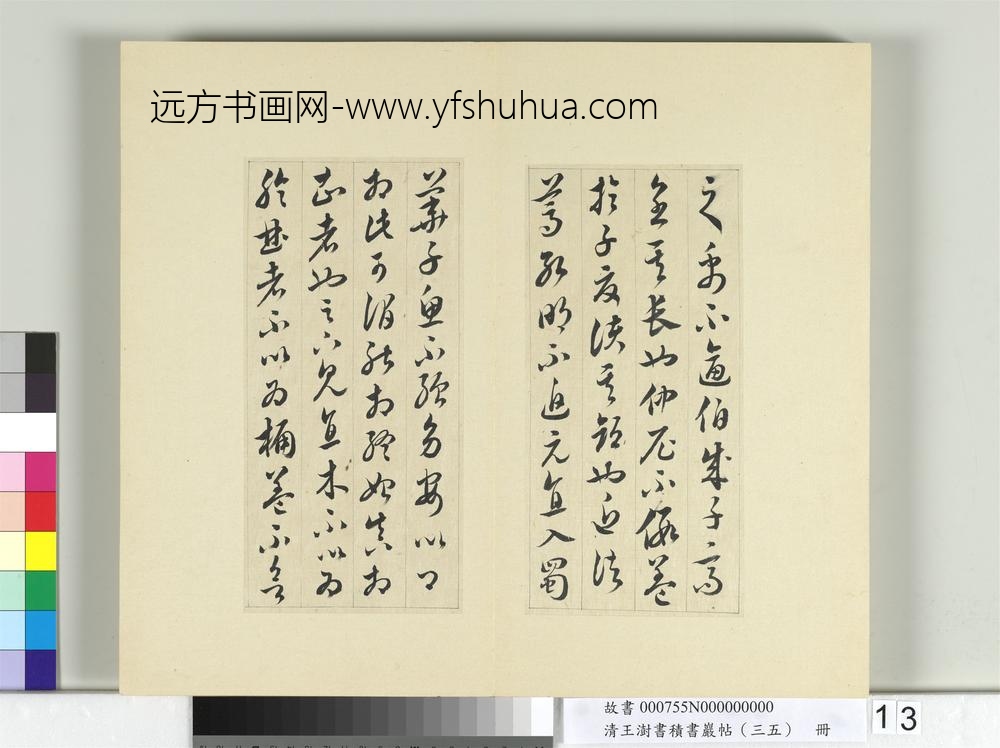 远方书画网-www.yfshuhua.com
之禹不逼伯成子高
全其長也仲尼不假蓋
於子夏護其短也近諸
葛孔明不迫元直入蜀
華子魚不強幼安以卿
相此可謂能相終始真相
知者也足下見直木不以為
輪曲者不以為桷蓋不欲
故書 000755N000000000
清王澍書積書巖帖（三五） 冊
13